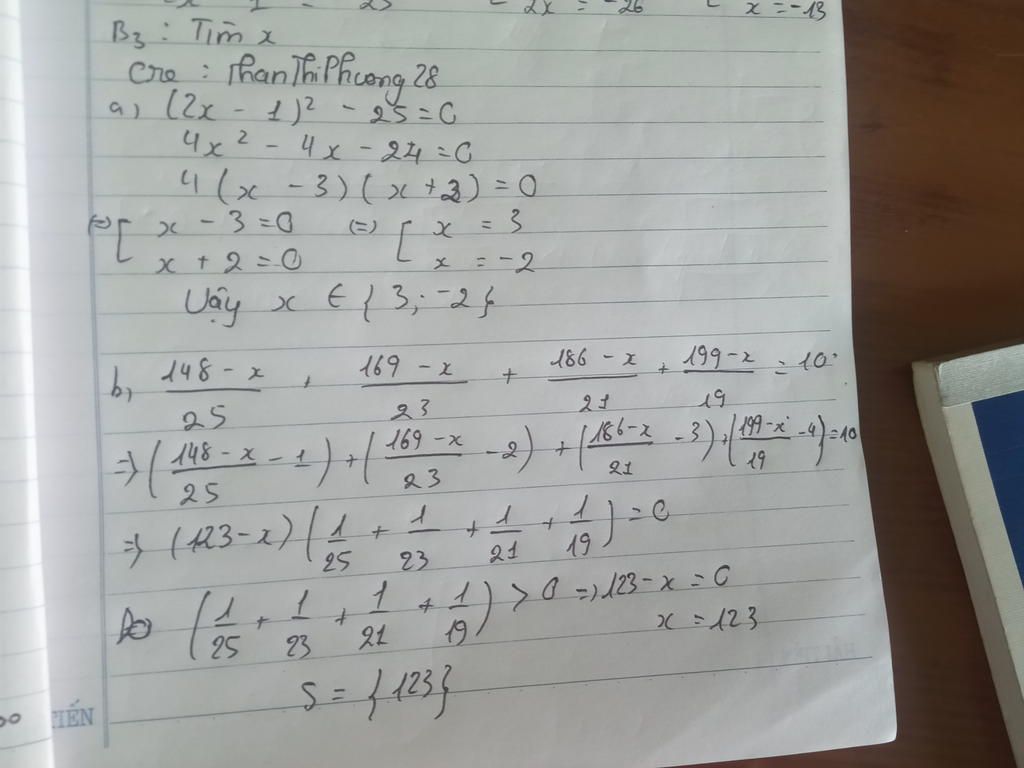 2x = -26 x = -13
B3 : Tìm x
Cre : ThanThiPhuong28
a, (2x - 1)² - 25 = 0
4x² - 4x - 24 = 0
4(x - 3)(x + 2) = 0
(=) [ x - 3 = 0 (=) [ x = 3
x + 2 = 0 x = -2
Vậy x ∈ {3; -2}
b, (148 - x)/25 + (169 - x)/23 + (186 - x)/21 + (199 - x)/19 = 10
=> ((148 - x)/25 - 1) + ((169 - x)/23 - 2) + ((186 - x)/21 - 3) + ((199 - x)/19 - 4) = 10
=> (123 - x)(1/25 + 1/23 + 1/21 + 1/19) = 0
Do (1/25 + 1/23 + 1/21 + 1/19) > 0 => 123 - x = 0
x = 123
S = {123}
TIẾN